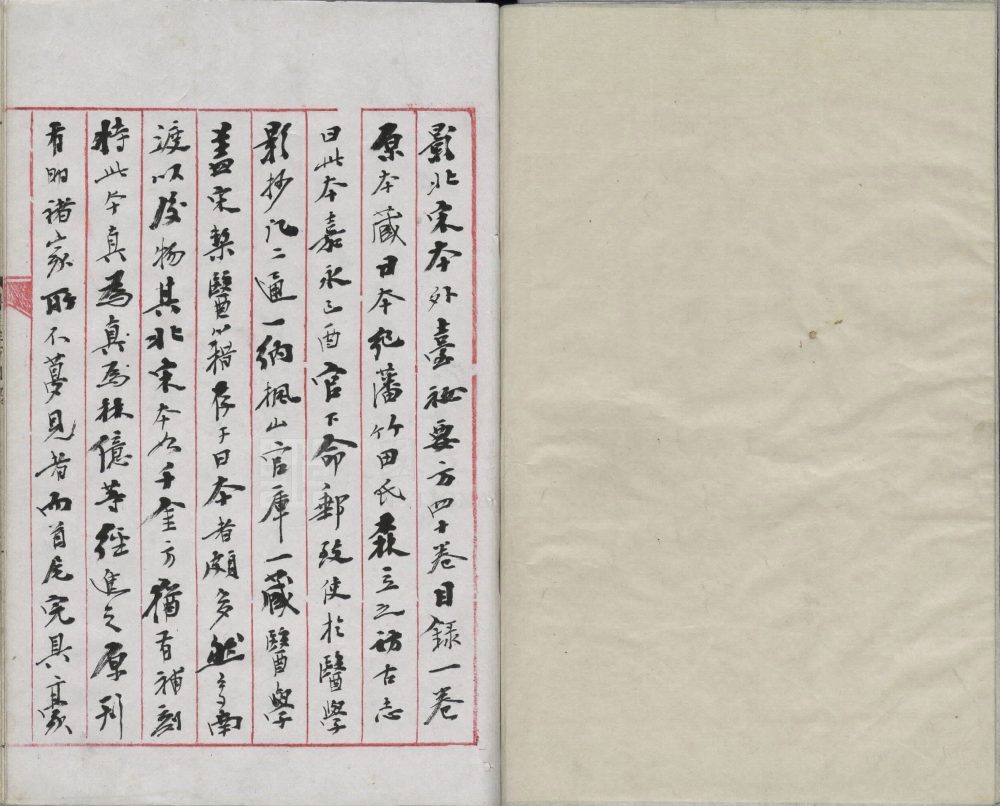 影北宋本外臺祕要方四十卷目錄一卷
原本藏日本紀藩竹田氏森立之訪古志
曰此本嘉永己酉官下命郵致使於醫學
影抄凡二通一納楓山官庫一藏醫學
蓋宋槧醫籍存于日本者頗多然多南
渡以後物其北宋本如千金方猶有補刻
特此本真為真為林億等經進之原刊
有明諸家所不夢見者而首尾完具豪